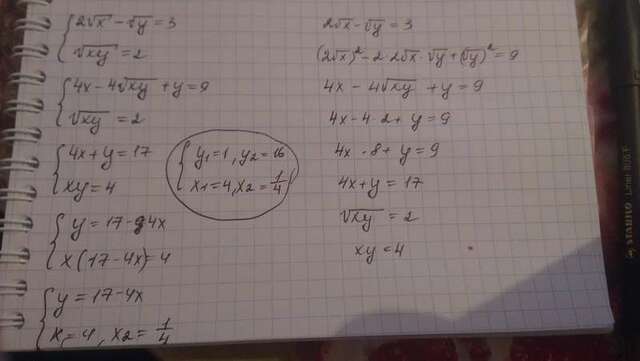 2√x - √y = 3
√xy = 2
4x - 4√xy + y = 9
√xy = 2
4x + y = 17
xy = 4
y = 17 - 4x
x(17 - 4x) = 4
y = 17 - 4x
x₁ = 4, x₂ = 1/4
y₁ = 1, y₂ = 16
x₁ = 4, x₂ = 1/4
2√x - √y = 3
(2√x)² - 2·2√x·√y + (√y)² = 9
4x - 4√xy + y = 9
4x - 4·2 + y = 9
4x - 8 + y = 9
4x + y = 17
√xy = 2
xy = 4
STABILO